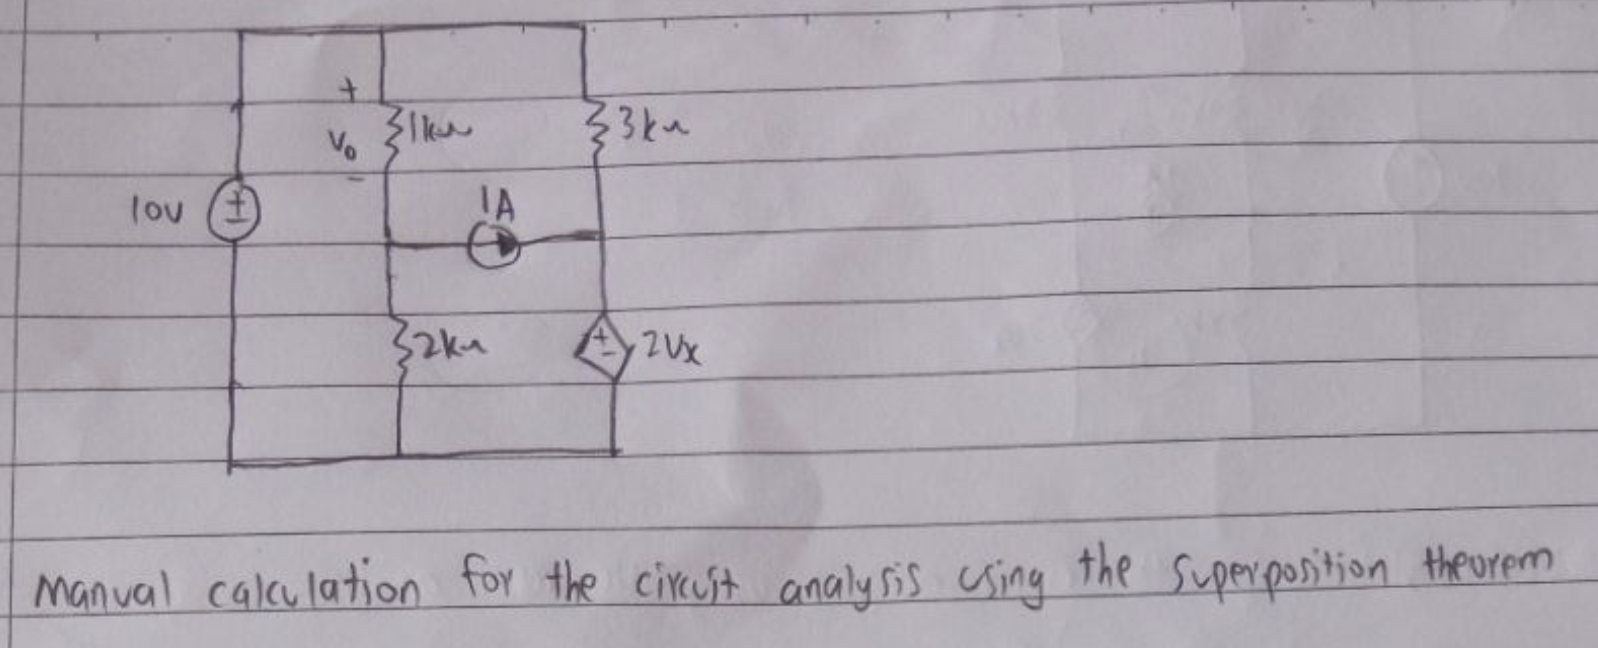 +
1kΩ
3kΩ
Vo
-
10V
+
-
1A
2kΩ
+
-
2Vx
Manual calculation for the circuit analysis using the superposition theorem